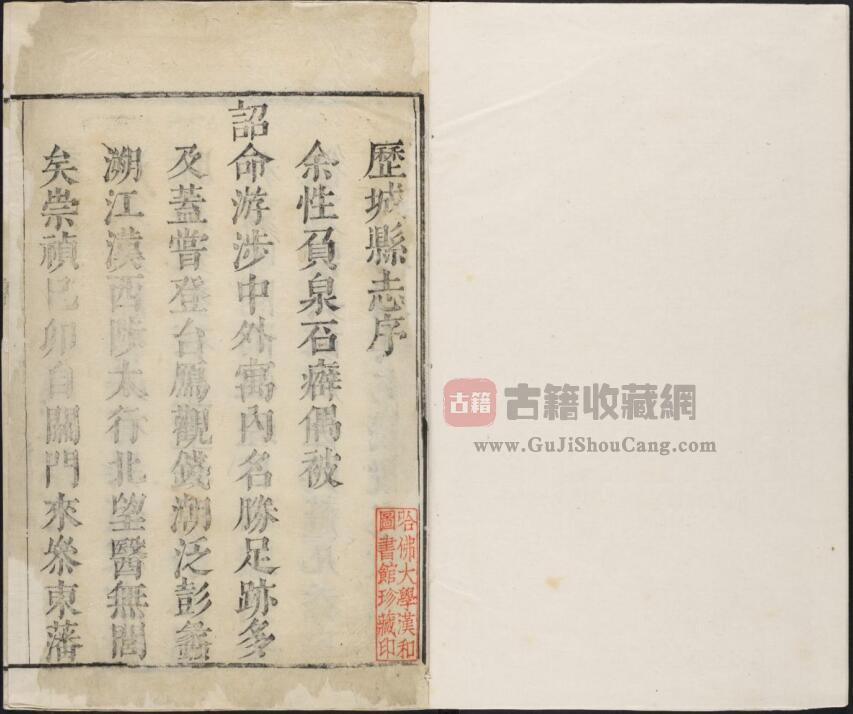 歷城縣志序
余性負泉石癖偶被
詔命游涉中外寓內名勝足跡多
及蓋嘗登台鴈觀錢潮泛彭蠡
溯江漢西陟太行北望醫無閭
矣崇禎己卯自關門來叅東藩
哈佛大學漢和
圖書館珍藏印
古籍
古籍收藏網
www.GuJiShouCang.com